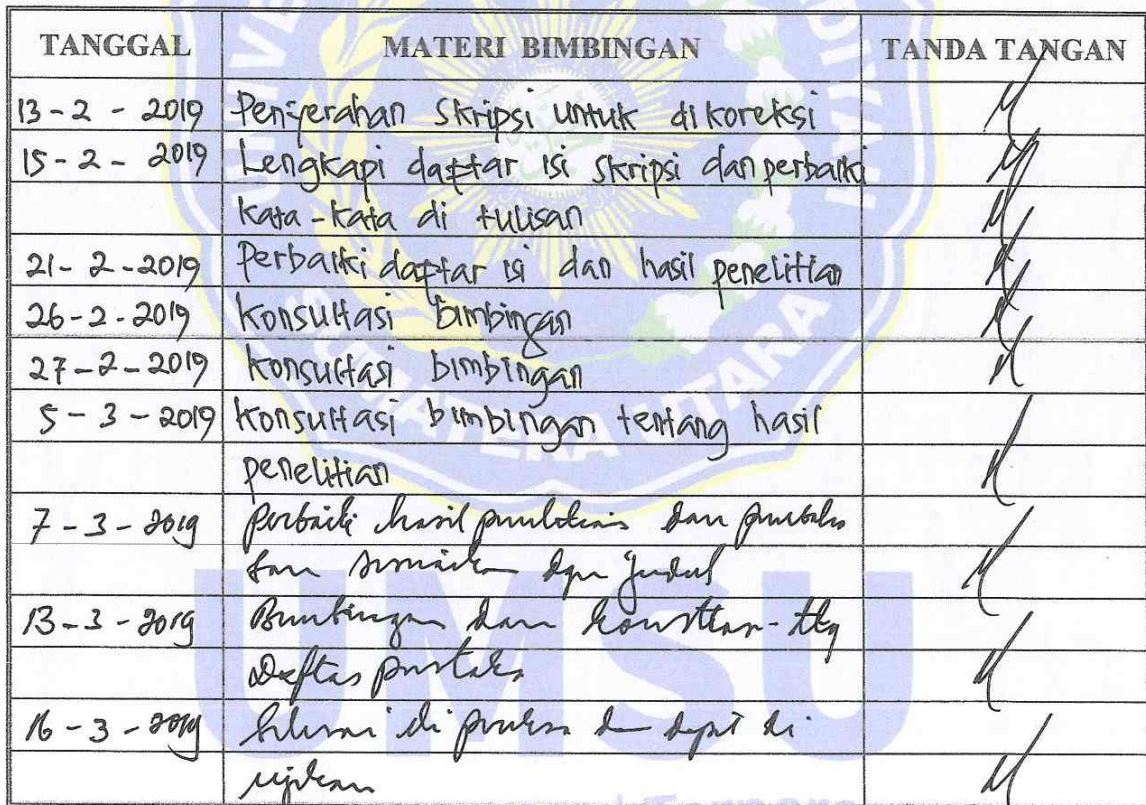 TANGGAL MATERI BIMBINGAN TANDA TANGAN
13-2-2019 Penyerahan Skripsi untuk di koreksi
15-2-2019 Lengkapi daftar isi skripsi dan perbaiki
kata-kata di tulisan
21-2-2019 Perbaiki daftar isi dan hasil penelitian
26-2-2019 Konsultasi bimbingan
27-2-2019 Konsultasi bimbingan
5-3-2019 Konsultasi bimbingan tentang hasil
penelitian
7-3-2019 Perbaiki hasil penelitian dan
judul
13-3-2019 Bimbingan dan
Daftar pustaka
16-3-2019 Selesai di periksa dan dapat di
ujikan
SUMATERA UTARA
UMSU